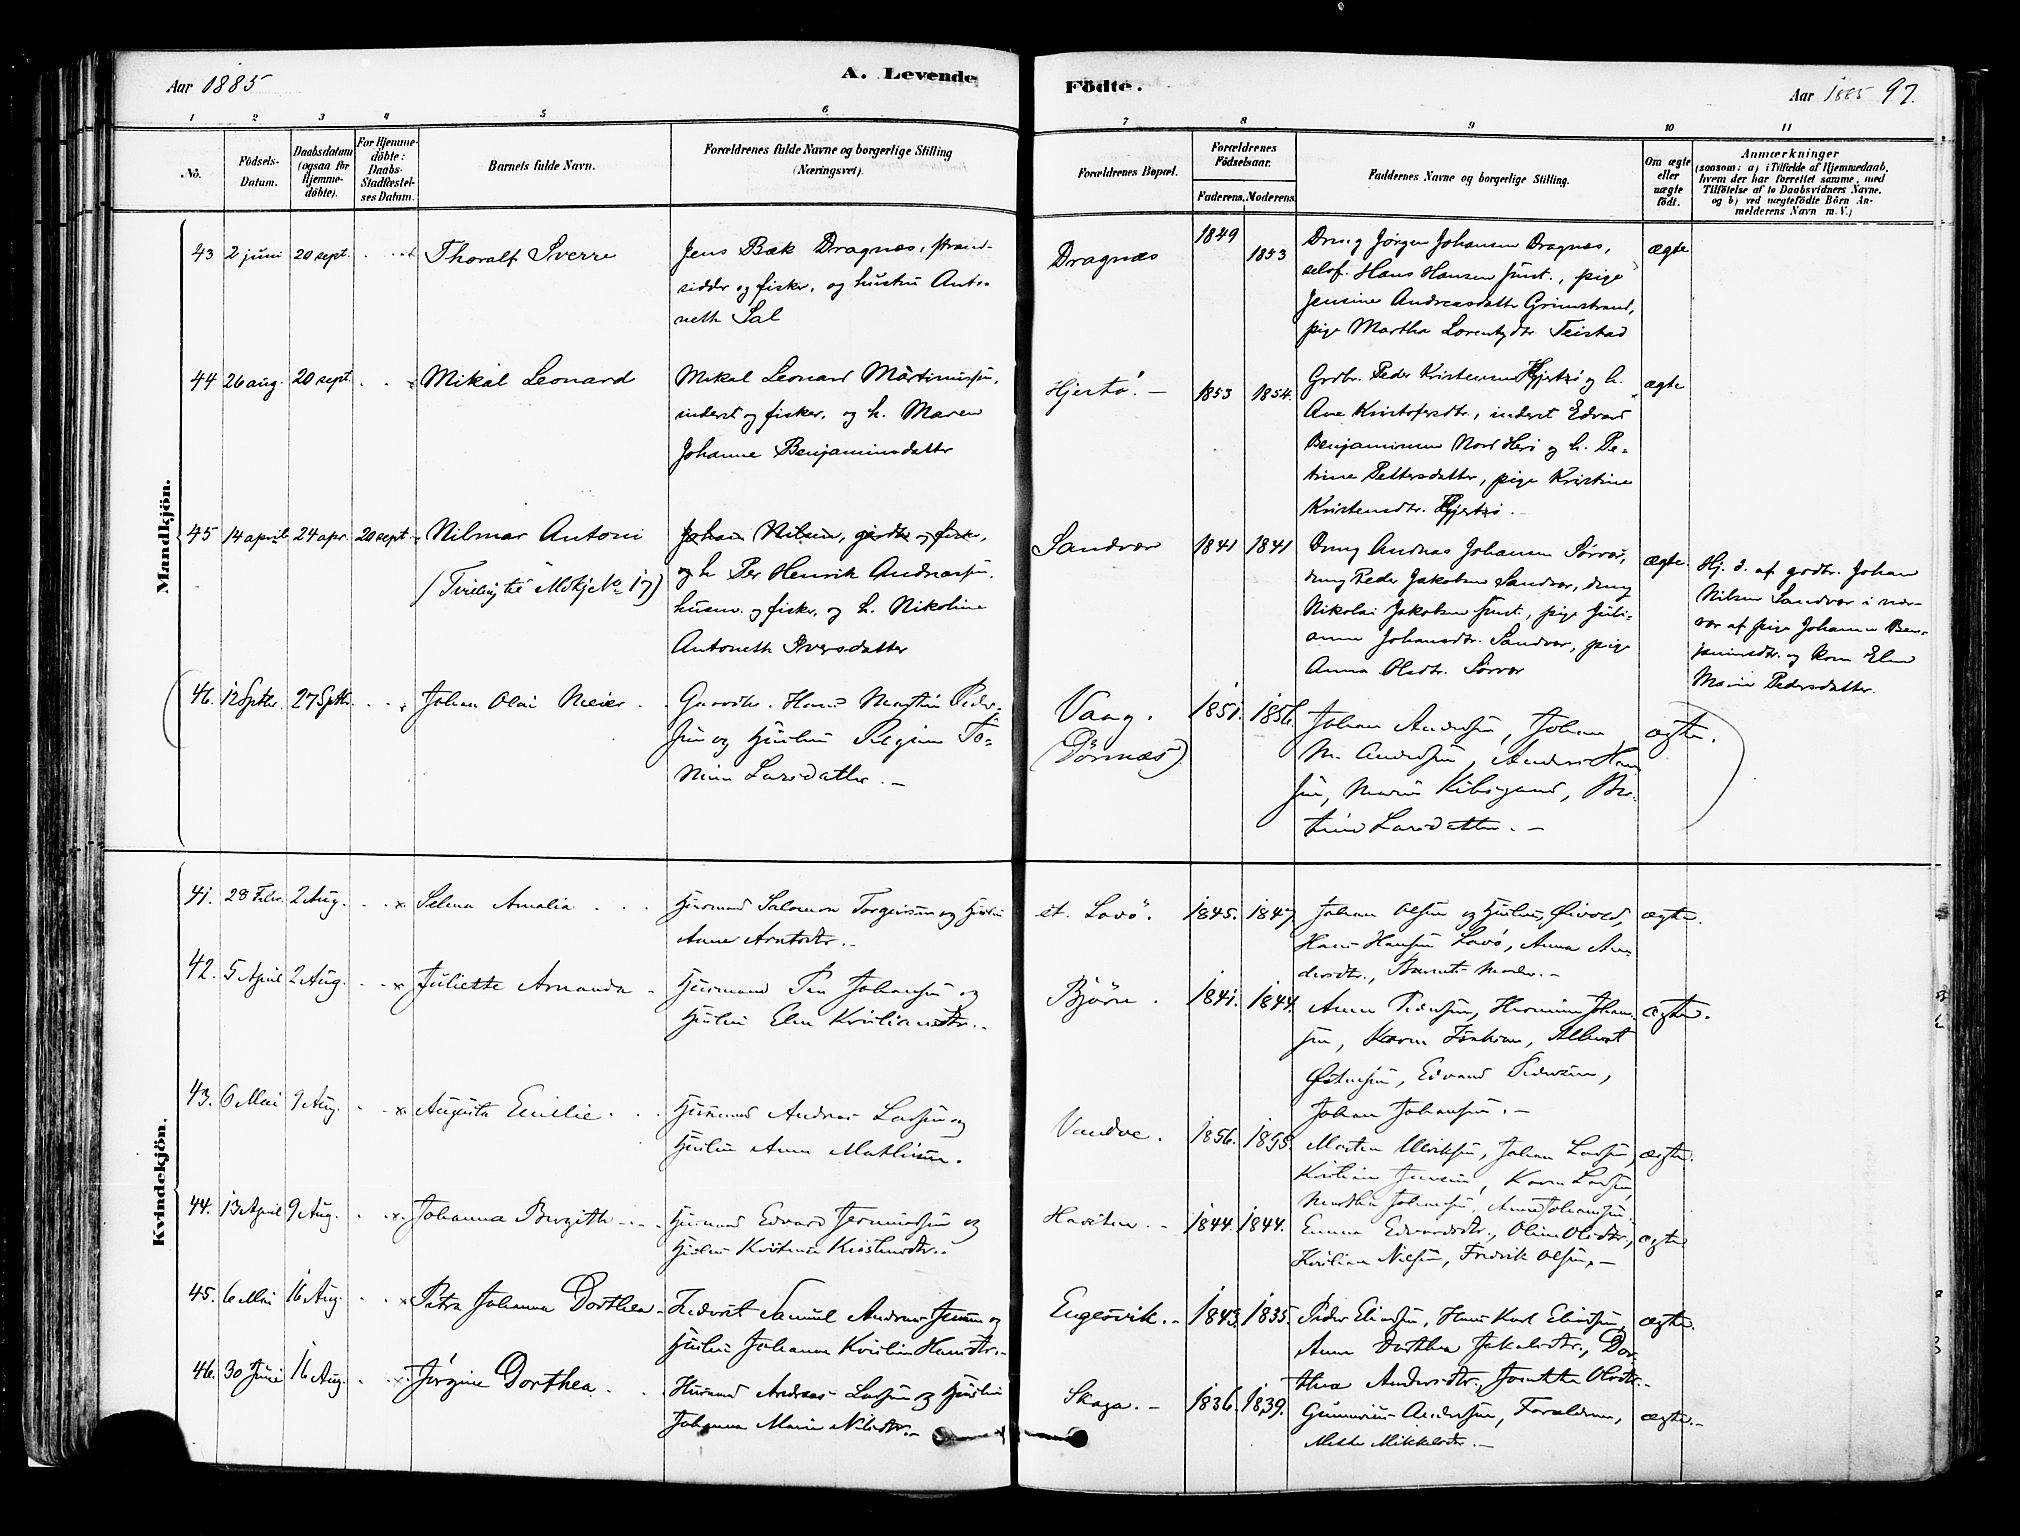 Aar 1885
A. Levende
Födte.
Aar 1885 97.
1 2 3 4 5 6 7 8 9 10 11
No.
Födsels-
Datum.
Daabsdatum
(ogsaa for
Hjemme-
döbte).
For Hjemme-
döbte:
Daabs-
Stadfæstel-
ses Datum.
Barnets fulde Navn.
Forældrenes fulde Navne og borgerlige Stilling
(Næringsvei).
Forældrenes Bopæl.
Forældrenes
Födselsaar.
Faderens. Moderens.
Faddernes Navne og borgerlige Stilling.
Om ægte
eller
uægte
födt.
Anmærkninger
(saasom: a) i Tilfælde af Hjemmedaab,
hvem der har forrettet samme, med
Tilföielse af to Daabsvidners Navne,
og b) ved uægtefödte Börn An-
melderens Navn m. V.)
Mandkjön.
43 2 juni 20 sept.
Thoralf Sverre
Jens Bæk Dragnæs, strand-
sidder og fisker, og hustru Anto-
neth Sal
Dragnæs
1849
1853
Drng Jørgen Johansen Dragnæs,
selvf. Hans Hansen smst., pige
Jensine Andreasdatter Grimstrand,
pige Martha Lorentzdtr Teistad
ægte
44 26 aug. 20 sept.
Mikal Leonard
Mikal Leonard Mortinussen,
inderst og fisker, og h. Maren
Johanne Benjaminsdatter
Hjertø. –
1853 1854.
Grdbr. Peder Kristensen Hjertø og h.
Ane Kristofersdtr., inderst Edvard
Benjaminsen Nord Herø og h. Pe-
trine Pettersdatter, pige Kristine
Kristensdtr. Hjertø.
ægte
45 14 april 24 apr. 20 sept.
Nilmar Antoni
(Tvilling til Mdkj No 17)
Johan Nilsen, gårdbr og fisker,
og h Per Henrik Andreassen,
husm. og fisker, og h. Nikoline
Antoneth Iversdatter
Sandvær
1841 1841
Drng Andreas Johansen Sørvær,
drng Peder Jakobsen Sandvær, drng
Nikolai Jakobsen smst., pige Juli-
anne Johansdtr. Sandvær, pige
Anna Olsdtr. Sørvær
ægte.
Hj. d. af grdbr. Johan
Nilsen Sandvær i nær-
vær af pige Johanna Ben-
jaminsdtr. og kone Elen
Marie Pedersdatter.
46. 12 Septbr. 27 Septbr.
Johan Olai Meier
Gaardbr. Hans Martin Peder-
sen og Hustru Regine To-
nine Larsdatter. –
Vaag.
(Dörnæs)
1851. 1856.
Johan Andersen, Johan
M. Andersen, Anders Han-
sen, Marie Kibsgaard, Ber-
tine Larsdatter. –
ægte.
Kvindekjön.
41. 28 Febr. 2 Aug.
Selma Amalia
Husmand Salomon Torgersen og Hustru
Anne Arntsdtr. –
st. Lavö.
1845. 1847
Johan Olsen og Hustru, Øivold,
Hans Hansen Lavö, Anna An-
dersdtr., Barnets Moder. –
ægte.
42. 5 April 2 Aug.
Juliette Amanda
Husmand Per Johansen og
Hustru Elen Kristiansdtr. –
Bjørn.
1841. 1844.
Anne Pedersen, Hermine Johan-
sen, Karen Isaksen, Albert
Østensen, Edvard Pedersen,
Johan Johansen. –
ægte.
43. 6 Mai 9 Aug.
Augusta Emilie
Husmand Andreas Larsen og
Hustru Anna Mathisen.
Vandve.
1856. 1855.
Morten Ulriksen, Johan Larsen,
Kristian Jensen, Karen Larsen,
Martha Johansen, Anne Johansen.
ægte.
44. 13 April 9 Aug.
Johanna Birgitte
Husmand Edvard Jeremiassen og
Hustru Kristine Kristensdtr.
Havsten. –
1844. 1844.
Emma Edvardsdtr., Oline Olsdtr.,
Kristian Nilsen, Fredrik Olsen. –
ægte
45. 6 Mai 16 Aug.
Petra Johanna Dorthea
Inderst Samuel Andreas Jensen og
Hustru Johanna Kristine Hansdtr. –
Engesvik. –
1843. 1835.
Peder Eliassen, Hans Karl Eliassen,
Anne Dorthea Jakobsdtr., Dor-
thea Andersdtr., Jonette Olsdtr. –
ægte.
46. 30 Juni 16 Aug.
Jörgine Dorthea
Husmand Andreas Larsen og Hustru
Johanna Marie Nilsdtr. –
Skaga. –
1836. 1839.
Gunnerius Andersen, Forældrene,
Mette Mikkelsdtr. –
ægte. –